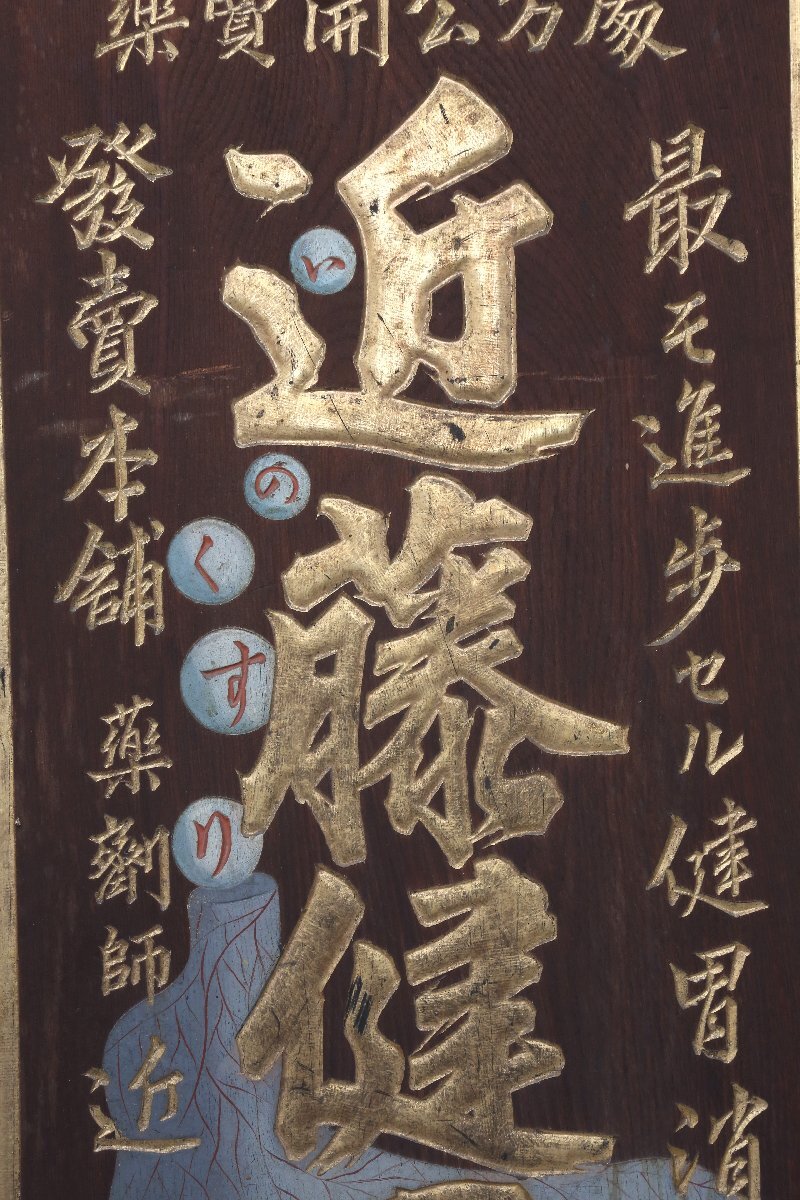 處方公開賣藥
最モ進歩セル健胃消
近藤健
いのくすり
發賣本舖 藥劑師近